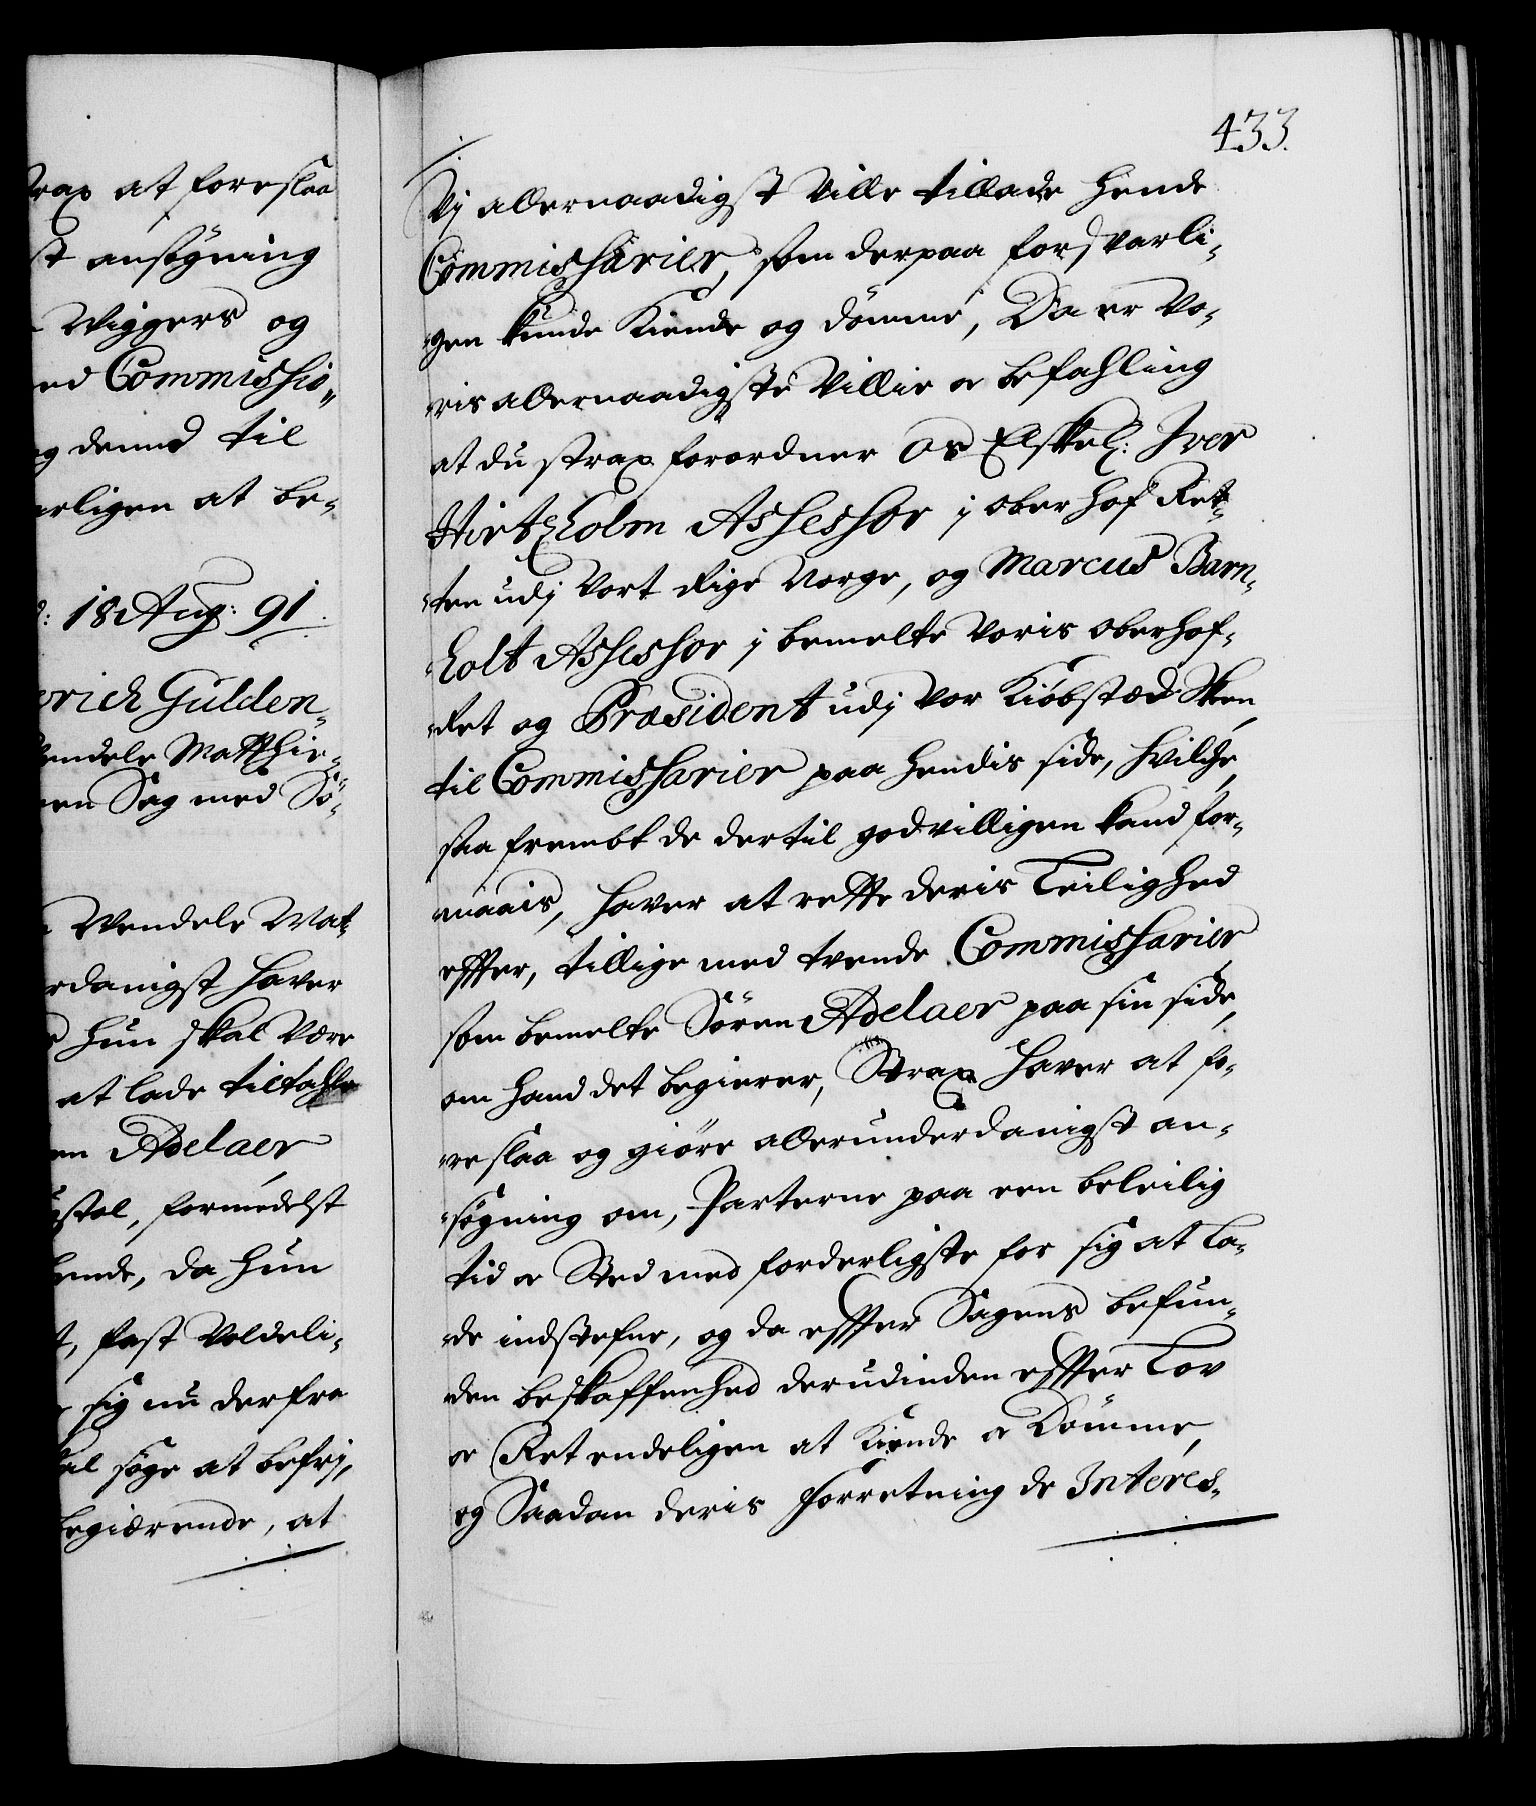 trax at foreslaa
st ansøgning
Wiggers og
ed Commissio,,
og denne til
arligen at be-
d: 18 Aug: 91.
erich Gulden-
Wendele Matthie-
een Sag med Sö-
Wendele Mat-
rdanigst haver
hun skal være
at lade tiltahle
en Adelaer
stal, formedelst
hende, da hun
t, fast Veldeli-
sig nu derfra
al söge at befrj,
begiærende, at
433.
Vj allernaadigst Ville tillade hende
Commissarier, som derpaa forsvarli-
gen kunde Kiende og dömme, Da er Vo-
ris allernaadigste Villie oc befahling
at du strax forordner Os Elskel: Iver
Hirtzholm Assessor j ober hof Ret-
ten udj Vort Rige Norge, og Marcus Barn-
holt Assessor j bemelte Voris oberhof-
Ret og Præsident udj Vor Kiöbstæd Skeen
til Commissarier paa hendis side, hvilche,
saa frembt de dertil godvilligen kand for-
maais, haver at rette deris Leilighed
effter, tillige med tvende Commissarier
som bemelte Sören Adelaer paa sin side,
om hand det begierer, Strax haver at fo-
reslaa og giöre allerunderdanigst an-
søgning om, Parterne paa een beleilig
tid oc Sted med forderligste for sig at La-
de indstefne, og da effter Sagens befun-
den beskaffenhed derudinden effter Lov
oc Ret endeligen at Kiende oc Dömme,
og Saadan deris forretning de Interes-